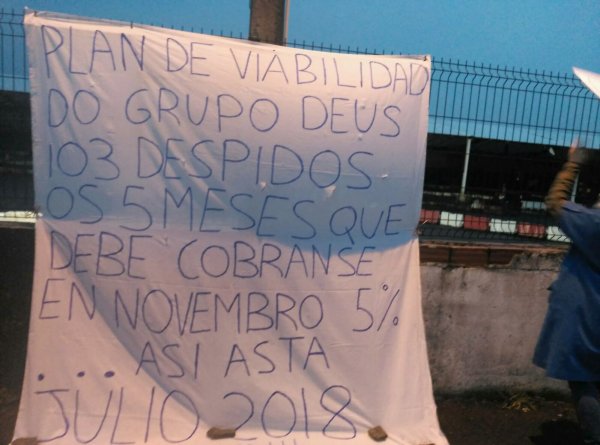 PLAN DE VIABILIDAD
DO GRUPO DEUS
103 DESPIDOS
OS 5 MESES QUE
DEBE COBRANSE
EN NOVEMBRO 5%
... ASI ASTA
JULIO 2018